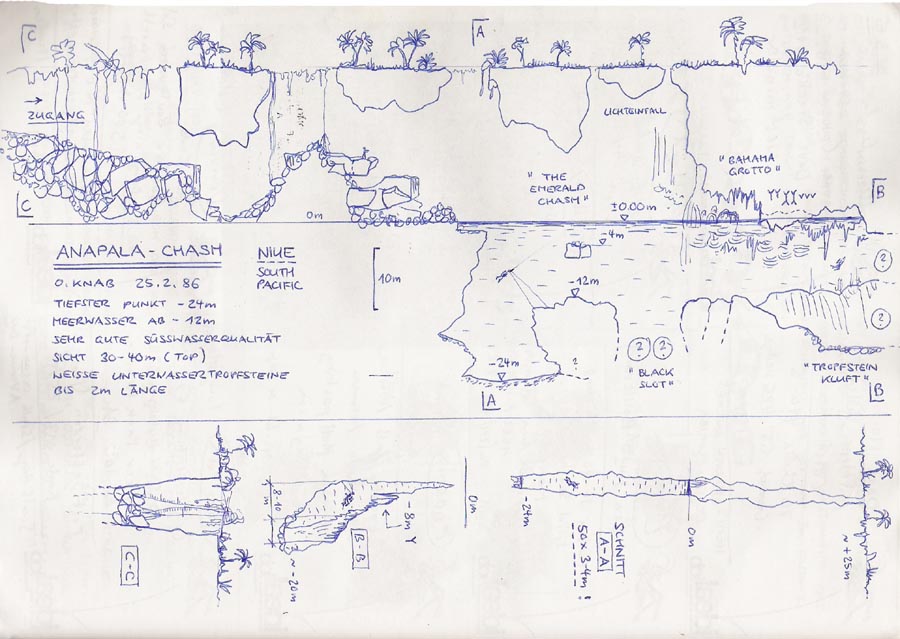 C
A
ZUGANG
LICHTEINFALL
"THE
EMERALD
CHASM"
"BAHAMA
GROTTO"
±0.00m
B
C
0m
-4m
ANAPALA-CHASH
NIUE
SOUTH
PACIFIC
O. KNAB 25.2.86
TIEFSTER PUNKT -24m
MEERWASSER AB -12m
SEHR GUTE SÜSSWASSERQUALITÄT
SICHT 30-40m (TOP)
WEISSE UNTERWASSERTROPFSTEINE
BIS 2m LÄNGE
10m
-12m
?
?
-24m
?
? ?
"BLACK
SLOT"
"TROPFSTEIN
KLUFT"
A
B
C-C
8-10
m
B-B
~-20m
-8m
0m
-24m
SCHNITT
A-A
50x3-4m!
0m
~+25m